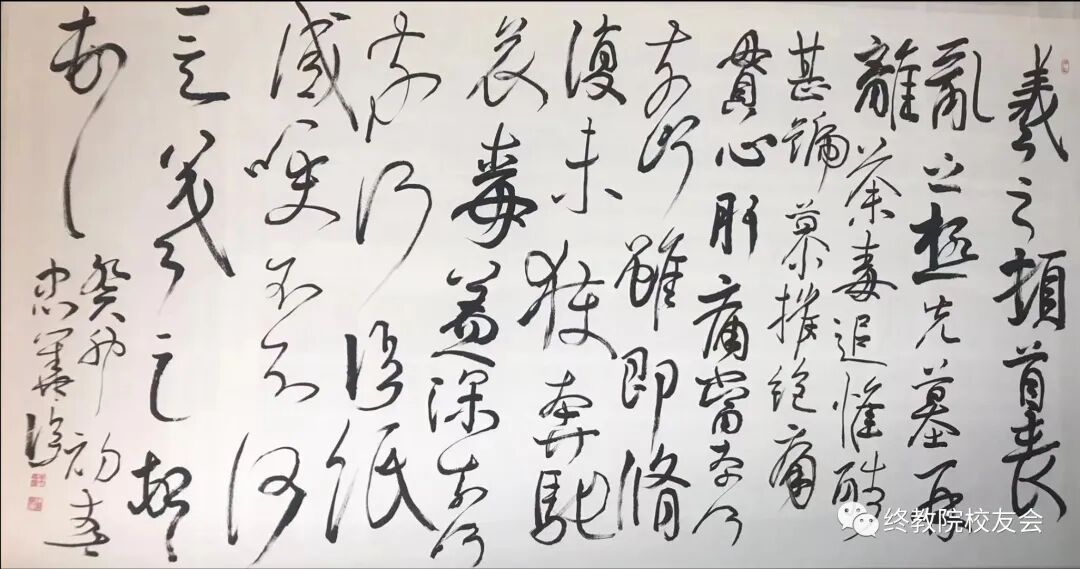 羲之頓首喪
亂之極先墓再
離荼毒追惟酷
甚號慕摧絕痛
貫心肝痛當奈何
奈何雖即脩
復未獲奔馳
哀毒益深奈何
奈何臨紙
感哽不知何
言羲之頓首
頓首
癸卯初春
终教院校友会